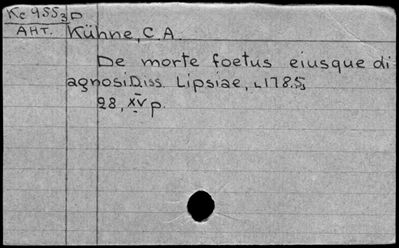 Kc 955 3 D
AHT. Kühne, C.A.
De morte foetus eiusque di
agnosi Diss. Lipsiae, 1785
28, XV p.